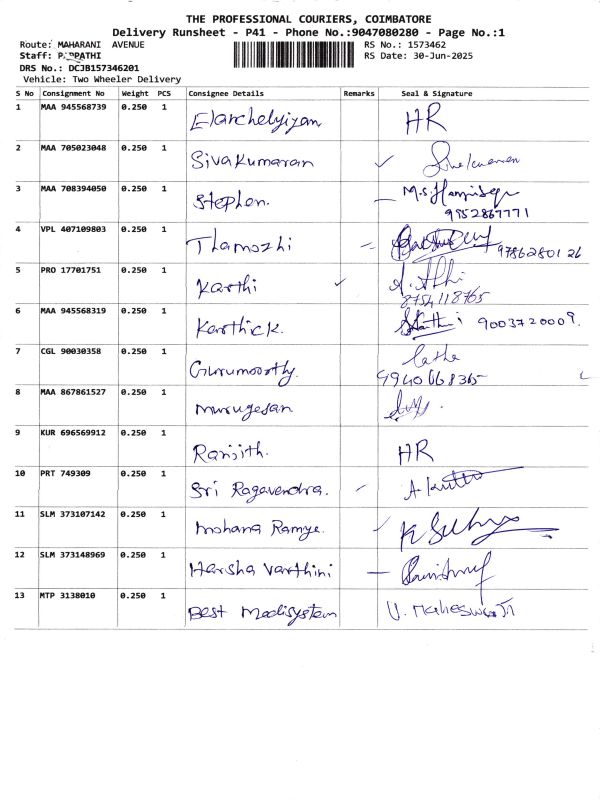 THE PROFESSIONAL COURIERS, COIMBATORE
Delivery Runsheet - P41 - Phone No.:9047080280 - Page No.:1
Route: MAHARANI AVENUE RS No.: 1573462
Staff: PAPPATHI RS Date: 30-Jun-2025
DRS No.: DCJB157346201
Vehicle: Two Wheeler Delivery
S No Consignment No Weight PCS Consignee Details Remarks Seal & Signature
1 MAA 945568739 0.250 1 Elarchelyizam HR
2 MAA 705023048 0.250 1 Sivakumaran
3 MAA 708394050 0.250 1 Stephen. M.S.
9952867771
4 VPL 407109803 0.250 1 Thamozhi 9786280126
5 PRO 17701751 0.250 1 Karthi
8754118765
6 MAA 945568319 0.250 1 Karthick. 9003720009.
7 CGL 90030358 0.250 1 Gurumoorthy. Latha
9940668365
8 MAA 867861527 0.250 1 Murugesan
9 KUR 696569912 0.250 1 Ranjith. HR
10 PRT 749309 0.250 1 Sri Ragavendra. A.
11 SLM 373107142 0.250 1 Mohana Ramye. K
12 SLM 373148969 0.250 1 Harsha Varthini
13 MTP 3138010 0.250 1 Best Medisystem U. Maheswari